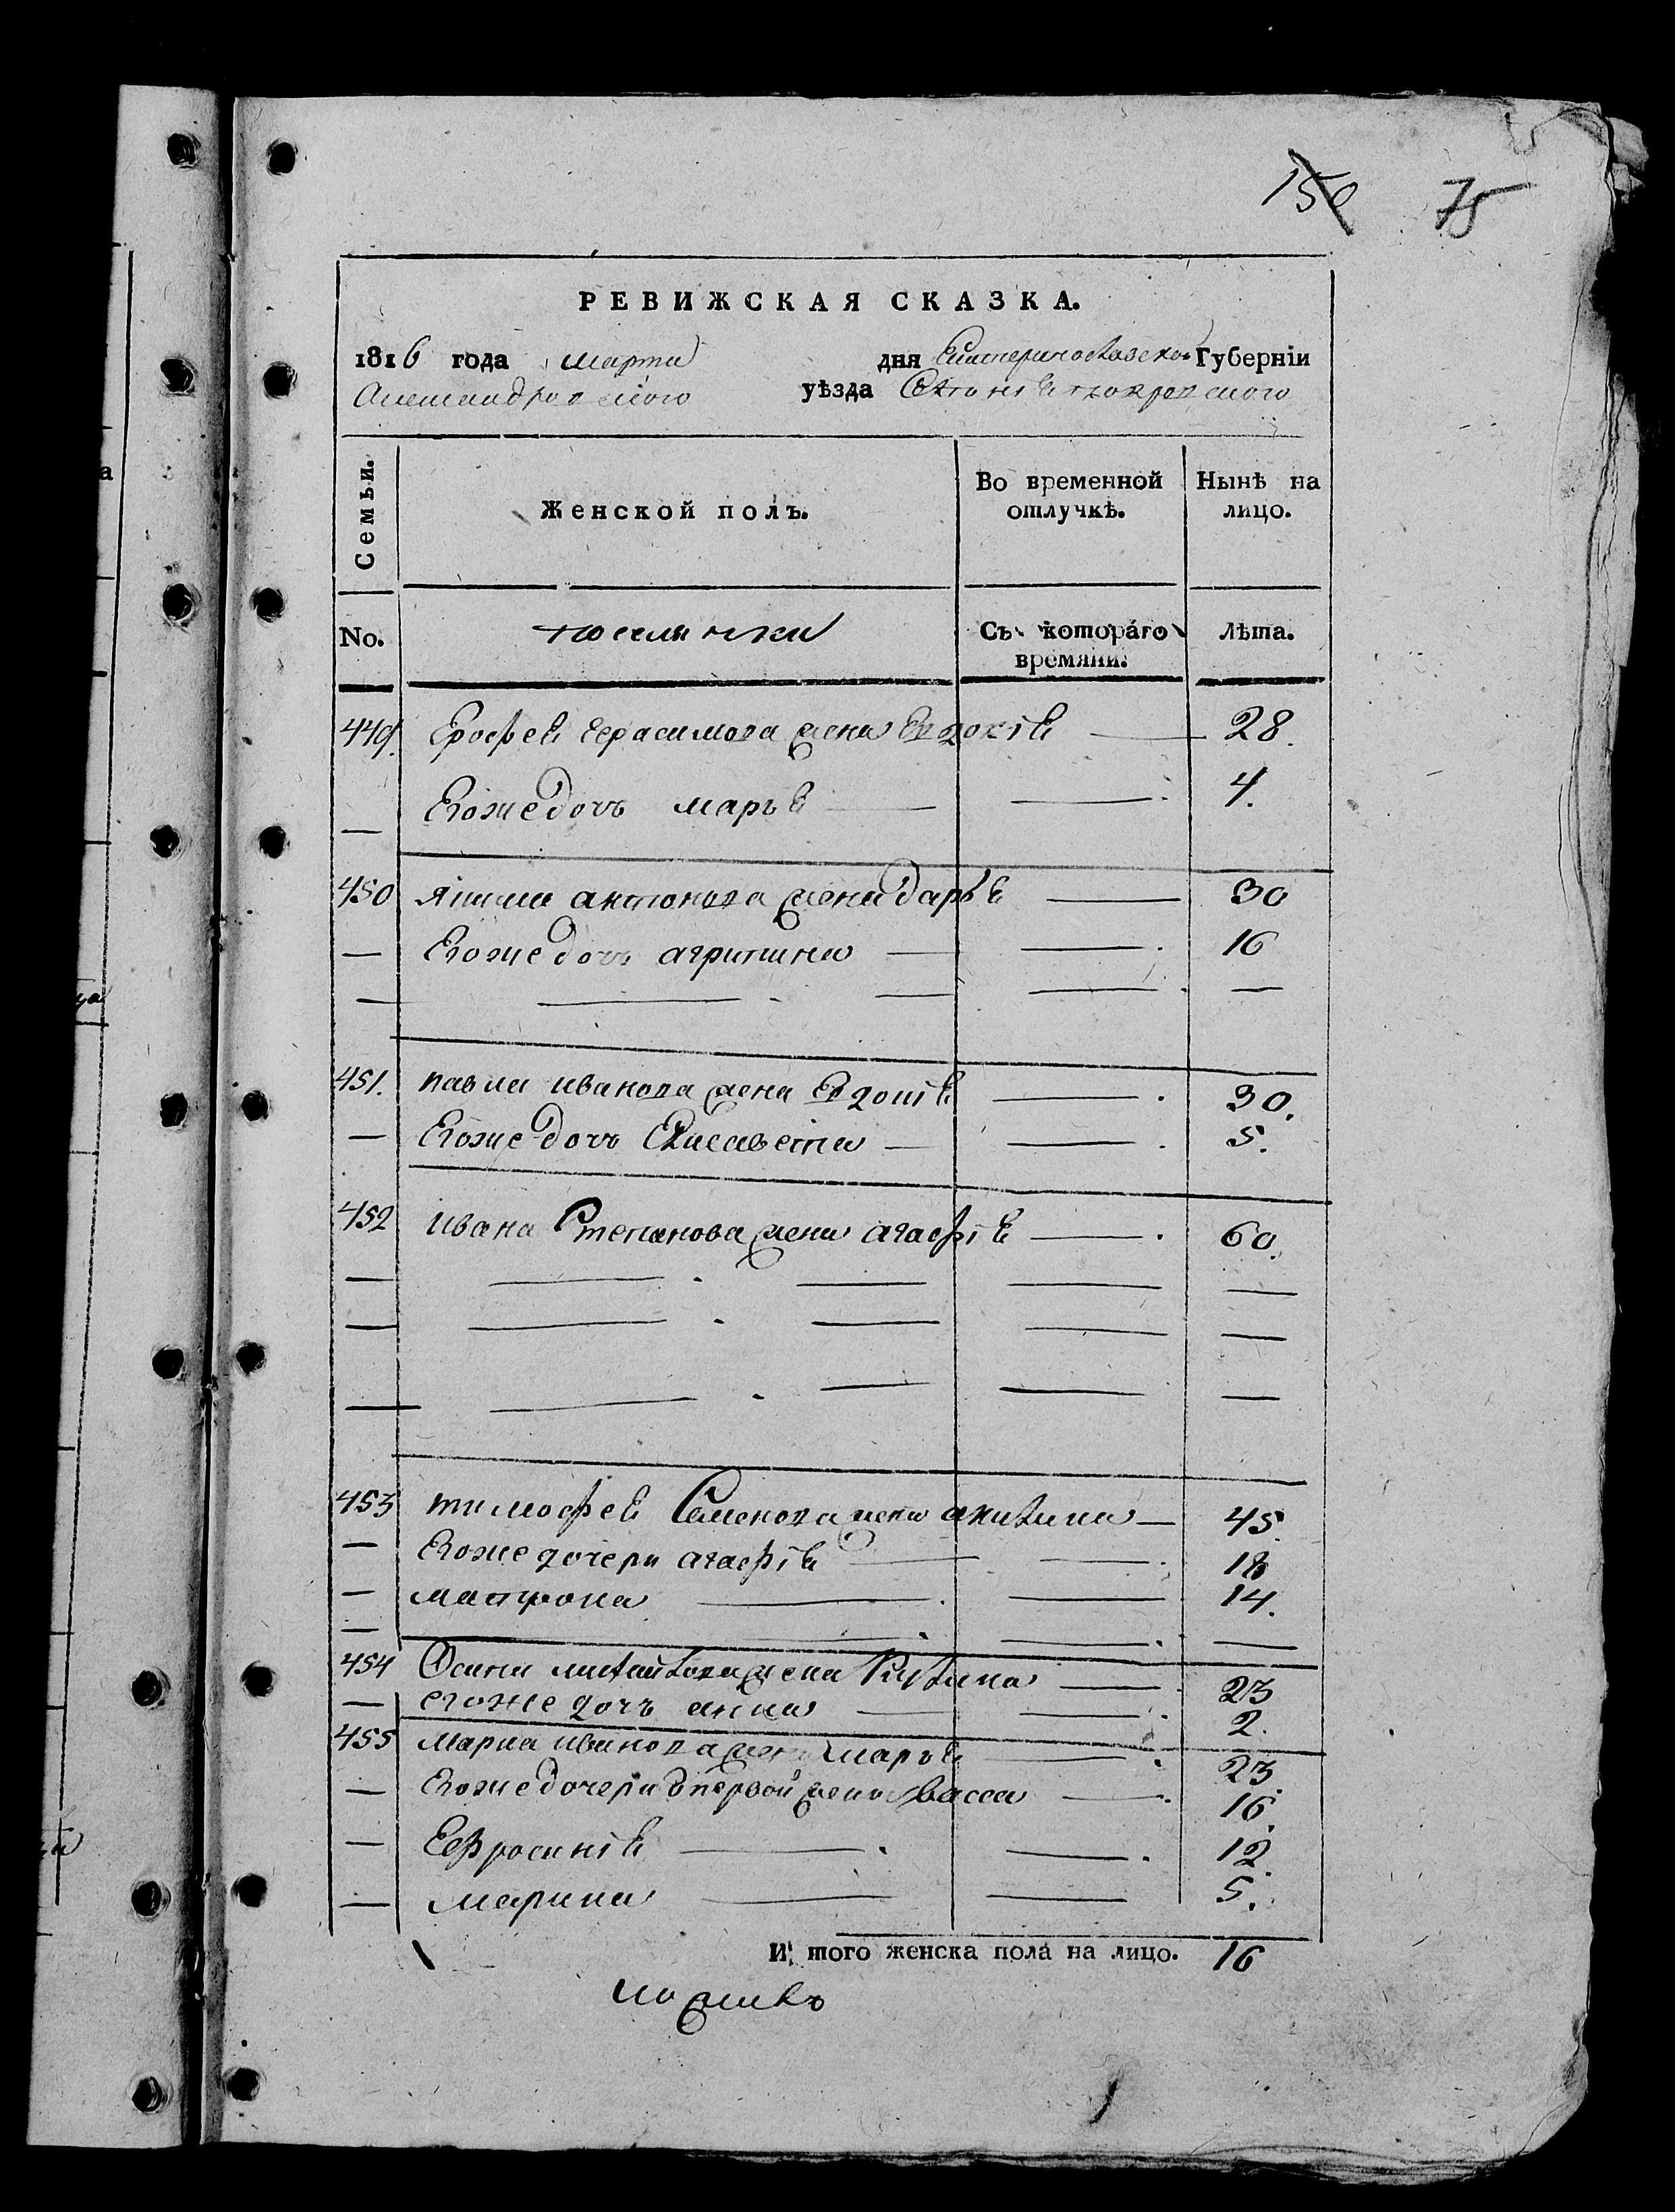 150 75
РЕВИЖСКАЯ СКАЗКА.
1816 года марта дня Екатеринославской Губерніи
Александровского уѣзда
Семьи. Женской полъ. Во временной отлучкѣ. Нынѣ на лицо.
No. поселянки Съ котораго времяни. Лѣта.
449. Ерофея Герасимова жена Евдокія 28.
Егоже дочь марья 4.
450 якима антонова жена дарья 30
Егоже дочь агрипина 16
451. павла иванова жена Евдокія 30.
Егоже дочь Елисавета 5.
452 ивана Степанова жена агафія 60.
453 тимофея Семенова жена акилина 45.
Егоже дочери агафія 18
матрона 14.
454 Осипа михайлова жена 23
егоже дочь анна 2.
455 Марка иванова жена марья 23.
Егоже дочери первой жены васса 16.
Ефросинія 12.
марина 5.
И того женска пола на лицо. 16